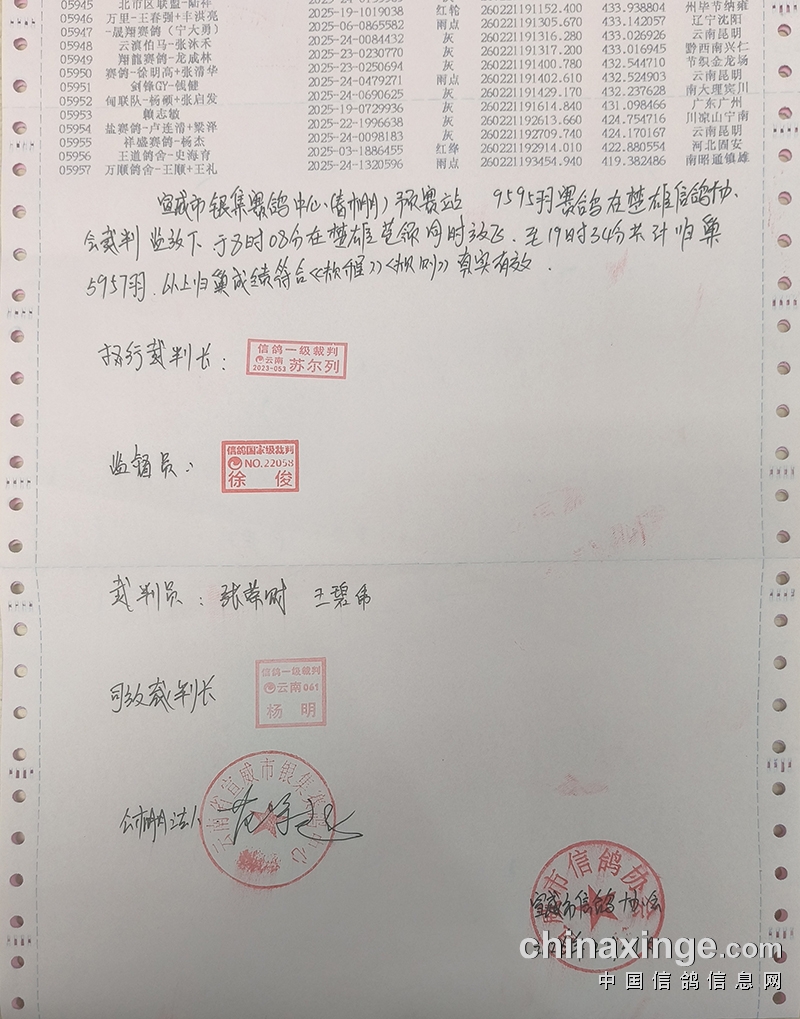 05945 北市区联盟-陆祥 红轮 260221191152.400 433.938804 州毕节纳雍
05946 万里-王春强+丰洪亮 2025-19-1019038 雨点 260221191305.670 433.142057 辽宁沈阳
05947 -晟翔赛鸽(宁大勇) 2025-06-0865582 灰 260221191316.280 433.026926 云南昆明
05948 云滇伯马-张沐禾 2025-24-0084432 灰 260221191317.200 433.016945 黔西南兴仁
05949 翔龍赛鸽-龙成林 2025-23-0230770 灰 260221191400.780 432.544710 节织金龙场
05950 赛鸽-徐明高+张清华 2025-23-0250694 雨点 260221191402.610 432.524903 云南昆明
05951 剑锋GY-钱健 2025-24-0479271 灰 260221191429.170 432.237628 南大理宾川
05952 甸联队-杨硕+张启发 2025-24-0690625 灰 260221191614.840 431.098466 广东广州
05953 赖志敏 2025-19-0729936 灰 260221192613.660 424.754716 川凉山宁南
05954 盐赛鸽-卢连清+梁泽 2025-22-1996638 灰 260221192709.740 424.170167 云南昆明
05955 祥盛赛鸽-杨杰 2025-24-0098183 红绛 260221192914.010 422.880554 河北固安
05956 王道鸽舍-史海育 2025-03-1886455 雨点 260221193454.940 419.382486 南昭通镇雄
05957 万顺鸽舍-王顺+王礼 2025-24-1320596
宣威市银集赛鸽中心(春棚)预赛站 9595羽赛鸽在楚雄信鸽协
会裁判监放下于8时08分在楚雄苍领同时放飞.至19时34分共计归巢
5957羽.以上归巢成绩符合《规程》《规则》真实有效.
执行裁判长:
信鸽一级裁判
云南
2023-053 苏尔列
监督员:
信鸽国家级裁判
NO.22058
徐 俊
裁判员: 张荣时 王碧伟
司放裁判长
信鸽一级裁判
云南061
杨 明
公棚法人
云南省宣威市银集赛鸽中心
宣威市信鸽协会
chinaxinge.com
中国信鸽信息网